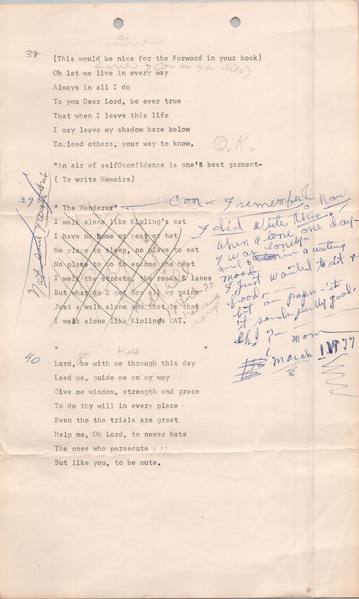 38
(This would be nice for the Forword in your book)
Oh let me live in every way
Always in all I do
To you Dear Lord, be ever true
That when I leave this life
I may leave my shadow here below
To lead others, your way to know.
O.K.
"An air of selfOconfidence is one's best garment-
( To write Memoirs)
39
"The Wanderer"
Con - I remember now
I did write this
when alone one day-
I was lonely
and in a writing
mood.
I just wanted to sit &
but on paper it
it sounds pretty good.
Mom
March 1977
I walk alone like Kipling's cat
I have no home or coat or hat
No place to sleep, no place to eat
No place to go to escape the heat
I walk the streets, the roads & lanes
But what do I get for all my pains
Just a walk alone and that is that
I walk alone like Kiplings CAT.
40
"
Lord, be with me through this day
Lead me, guide me on my way
Give me wisdom, strength and grace
To do thy will in every place
Even tho the trials are great
Help me, Oh Lord, to never hate
The ones who persecute ???
But like you, to be mute.